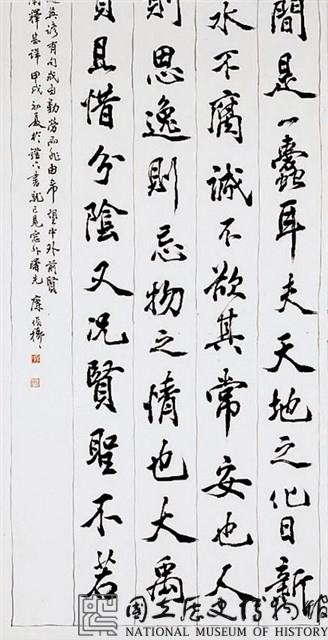 間是一蠹耳夫天地之化日新
水不腐誠不欲其常安也人
則思逸則忘物之情也大禹
賢且惜分陰又況賢聖不若
英諺有句成由勤勞而非由希望中外前賢
釋甚詳 甲戌初夏於 書就已見窗外曙光
國立歷史博物館
NATIONAL MUSEUM OF HISTORY